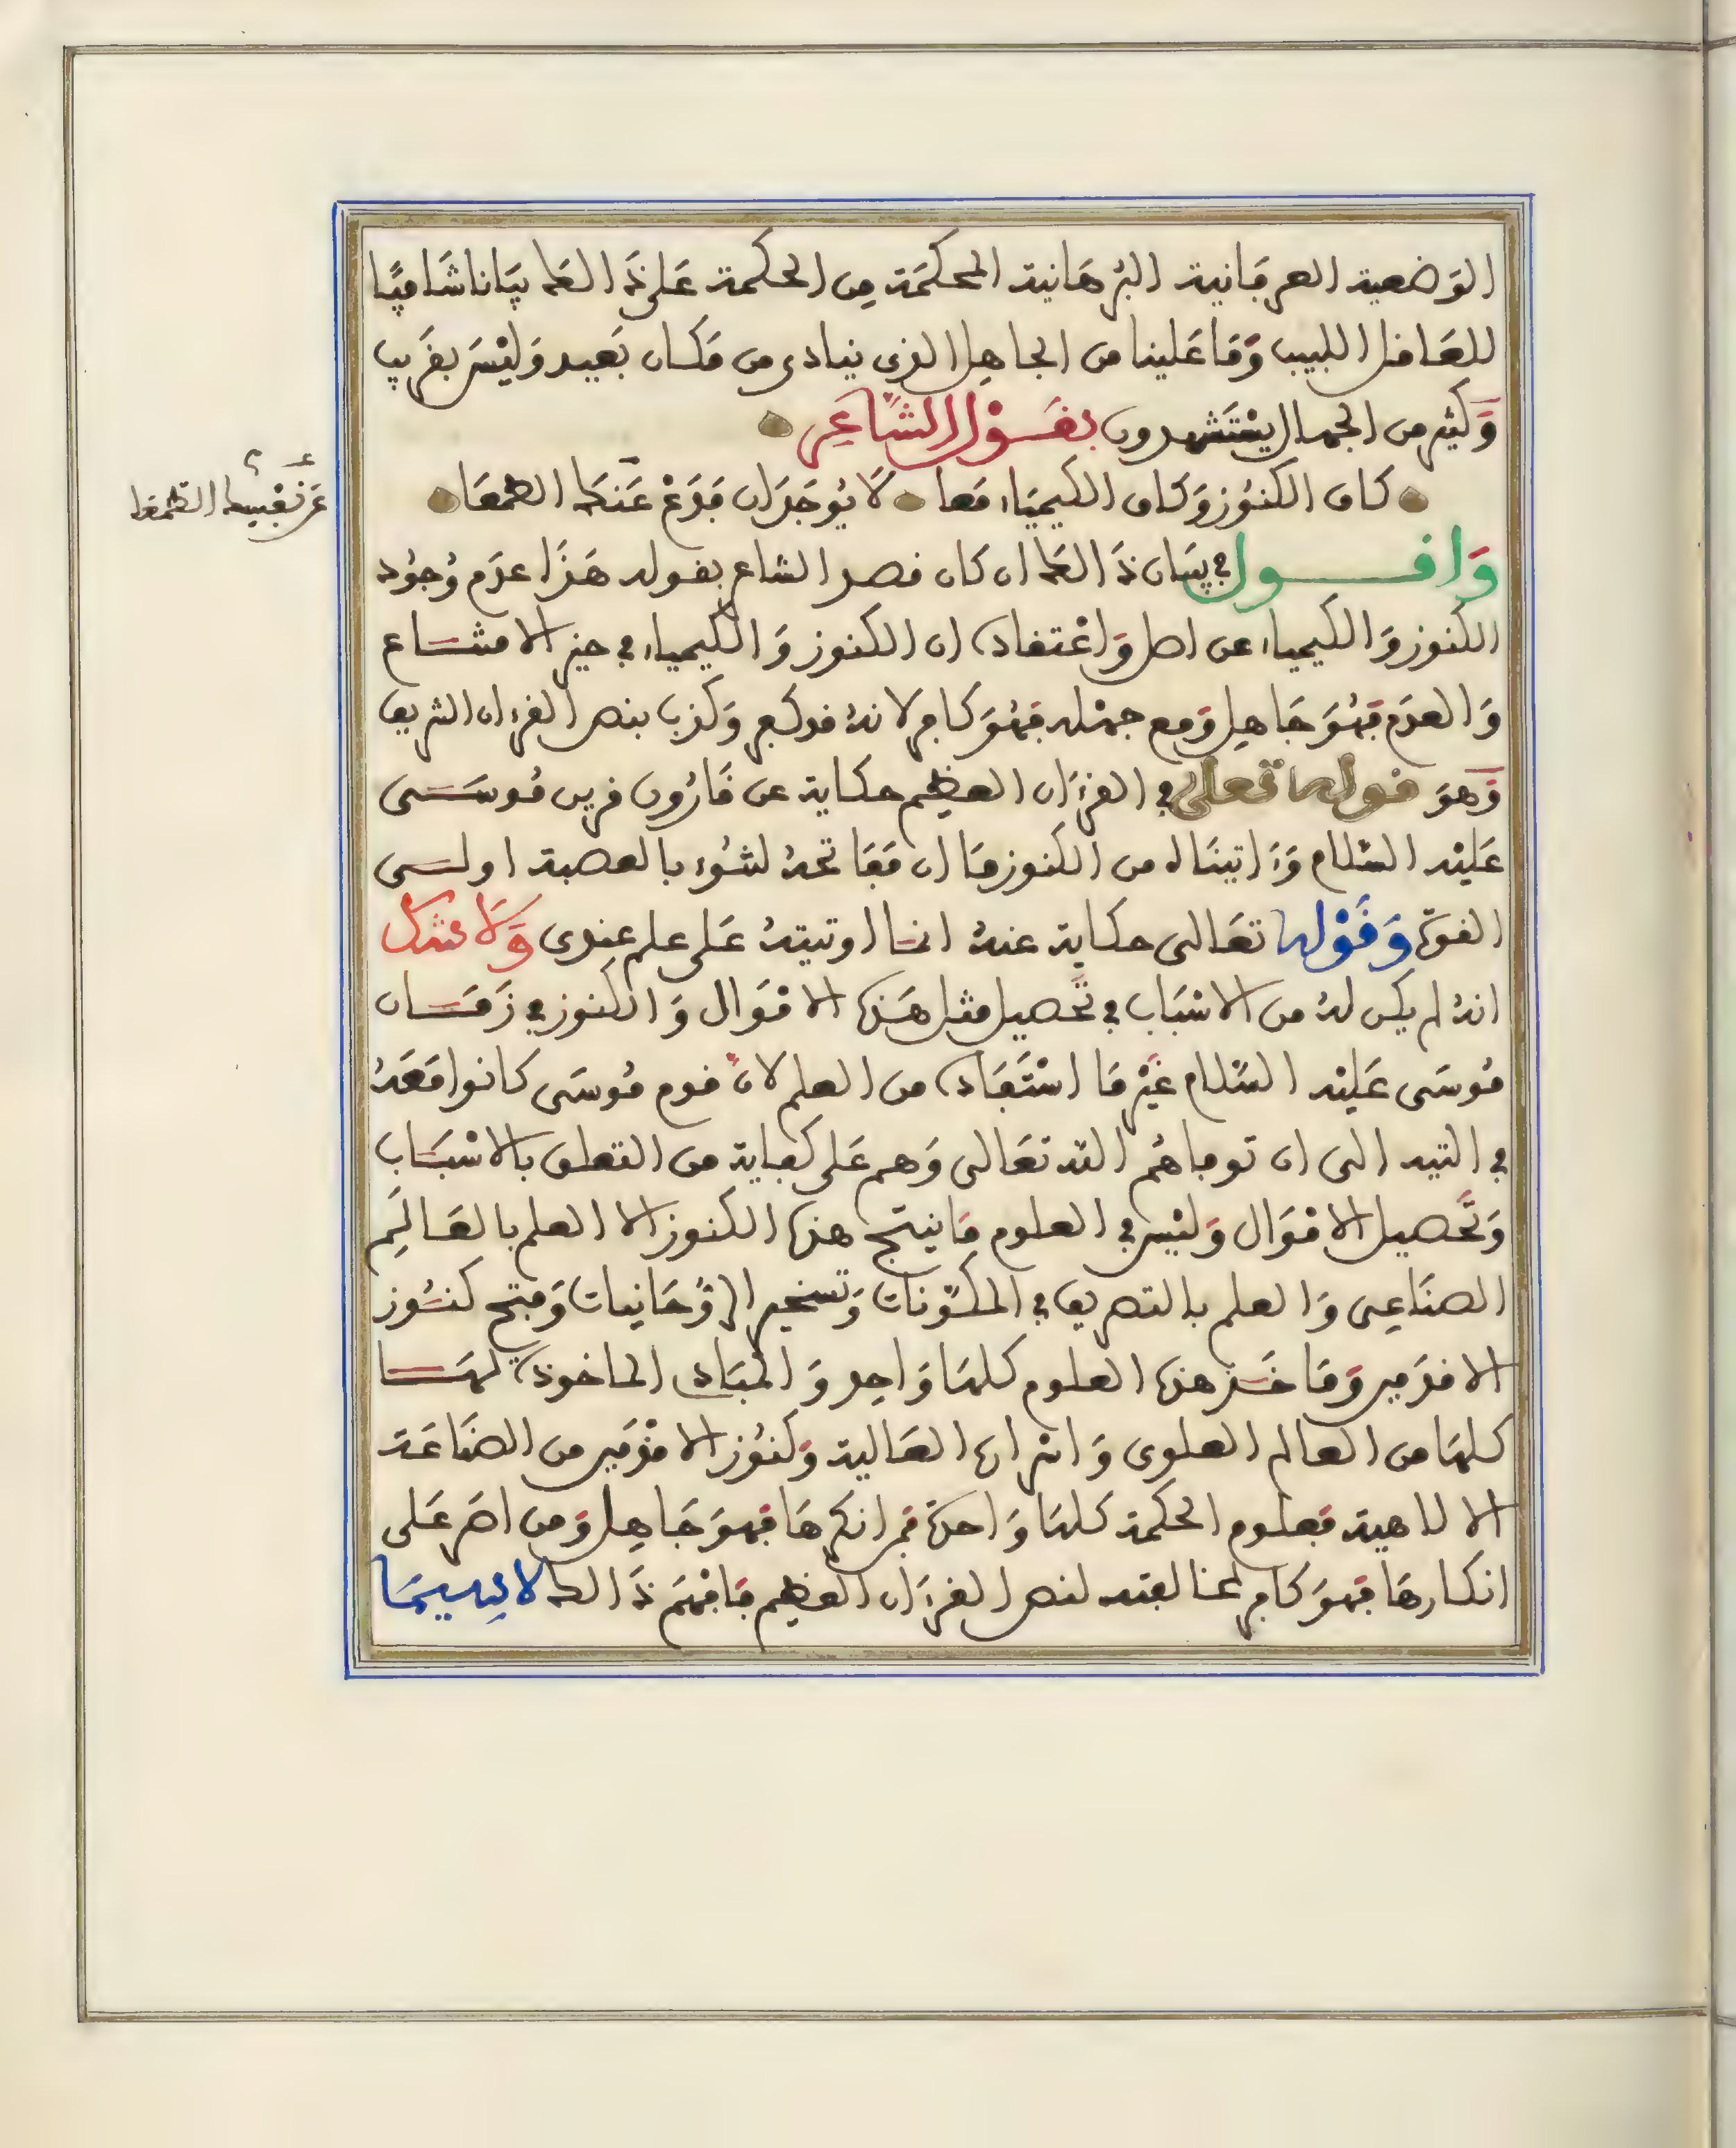 الوضعية العرفانية البرهانية المحكمة من الحكمة على ذالك بيانا شافيا
للعاقل اللبيب وما علينا من الجاهل الذي ينادى من مكان بعيد وليس بقريب
وكثير من الجهال يستشهدون بقول الشاعر
كاف الكنوز وكاف الكيمياء معا لا يوجدان فدع عنك الطمعا
عن نفسك الطمعا
واقول في بيان ذالك ان كان قصد الشاعر بقوله هذا عدم وجود
الكنوز والكيمياء عن اصل واعتقاده ان الكنوز والكيمياء في حيز الامتناع
والعدم فهو جاهل ومع جهله فهو كافر لانه قد كفر وكذب بنص القرءان الشريف
وهو قوله تعلى في القرءان العظيم حكاية عن قارون قرين موسى
عليه السلام وءاتيناه من الكنوز ما ان مفاتحه لتنوء بالعصبة اولى
القوة وقوله تعالى حكاية عنه انما اوتيته على علم عندى ولا شك
انه لم يكن له من الاسباب في تحصيل مثل هذه الاموال والكنوز في زمان
موسى عليه السلام غير ما استفاده من العلم لان قوم موسى كانوا معه
في التيه الى ان توفاهم الله تعالى وهم على كفاية من التعلق بالاسباب
وتحصيل الاموال وليس في العلوم ما ينتج هذه الكنوز الا العلم بالعالم
الصناعى والعلم بالتصريف في المكونات وتسخير الروحانيات وفتح كنوز
الاقدمين وماخذ هذه العلوم كلها واحد والمبادى الماخوذة لها
كلها من العالم العلوى واثراته العالية وكنوز الاقدمين من الصناعة
الالاهية فعلوم الحكمة كلها واحدة فمن انكرها فهو جاهل ومن اصر على
انكارها فهو كافر لمخالفته لنص القرءان العظيم فافهم ذالك لاسيما